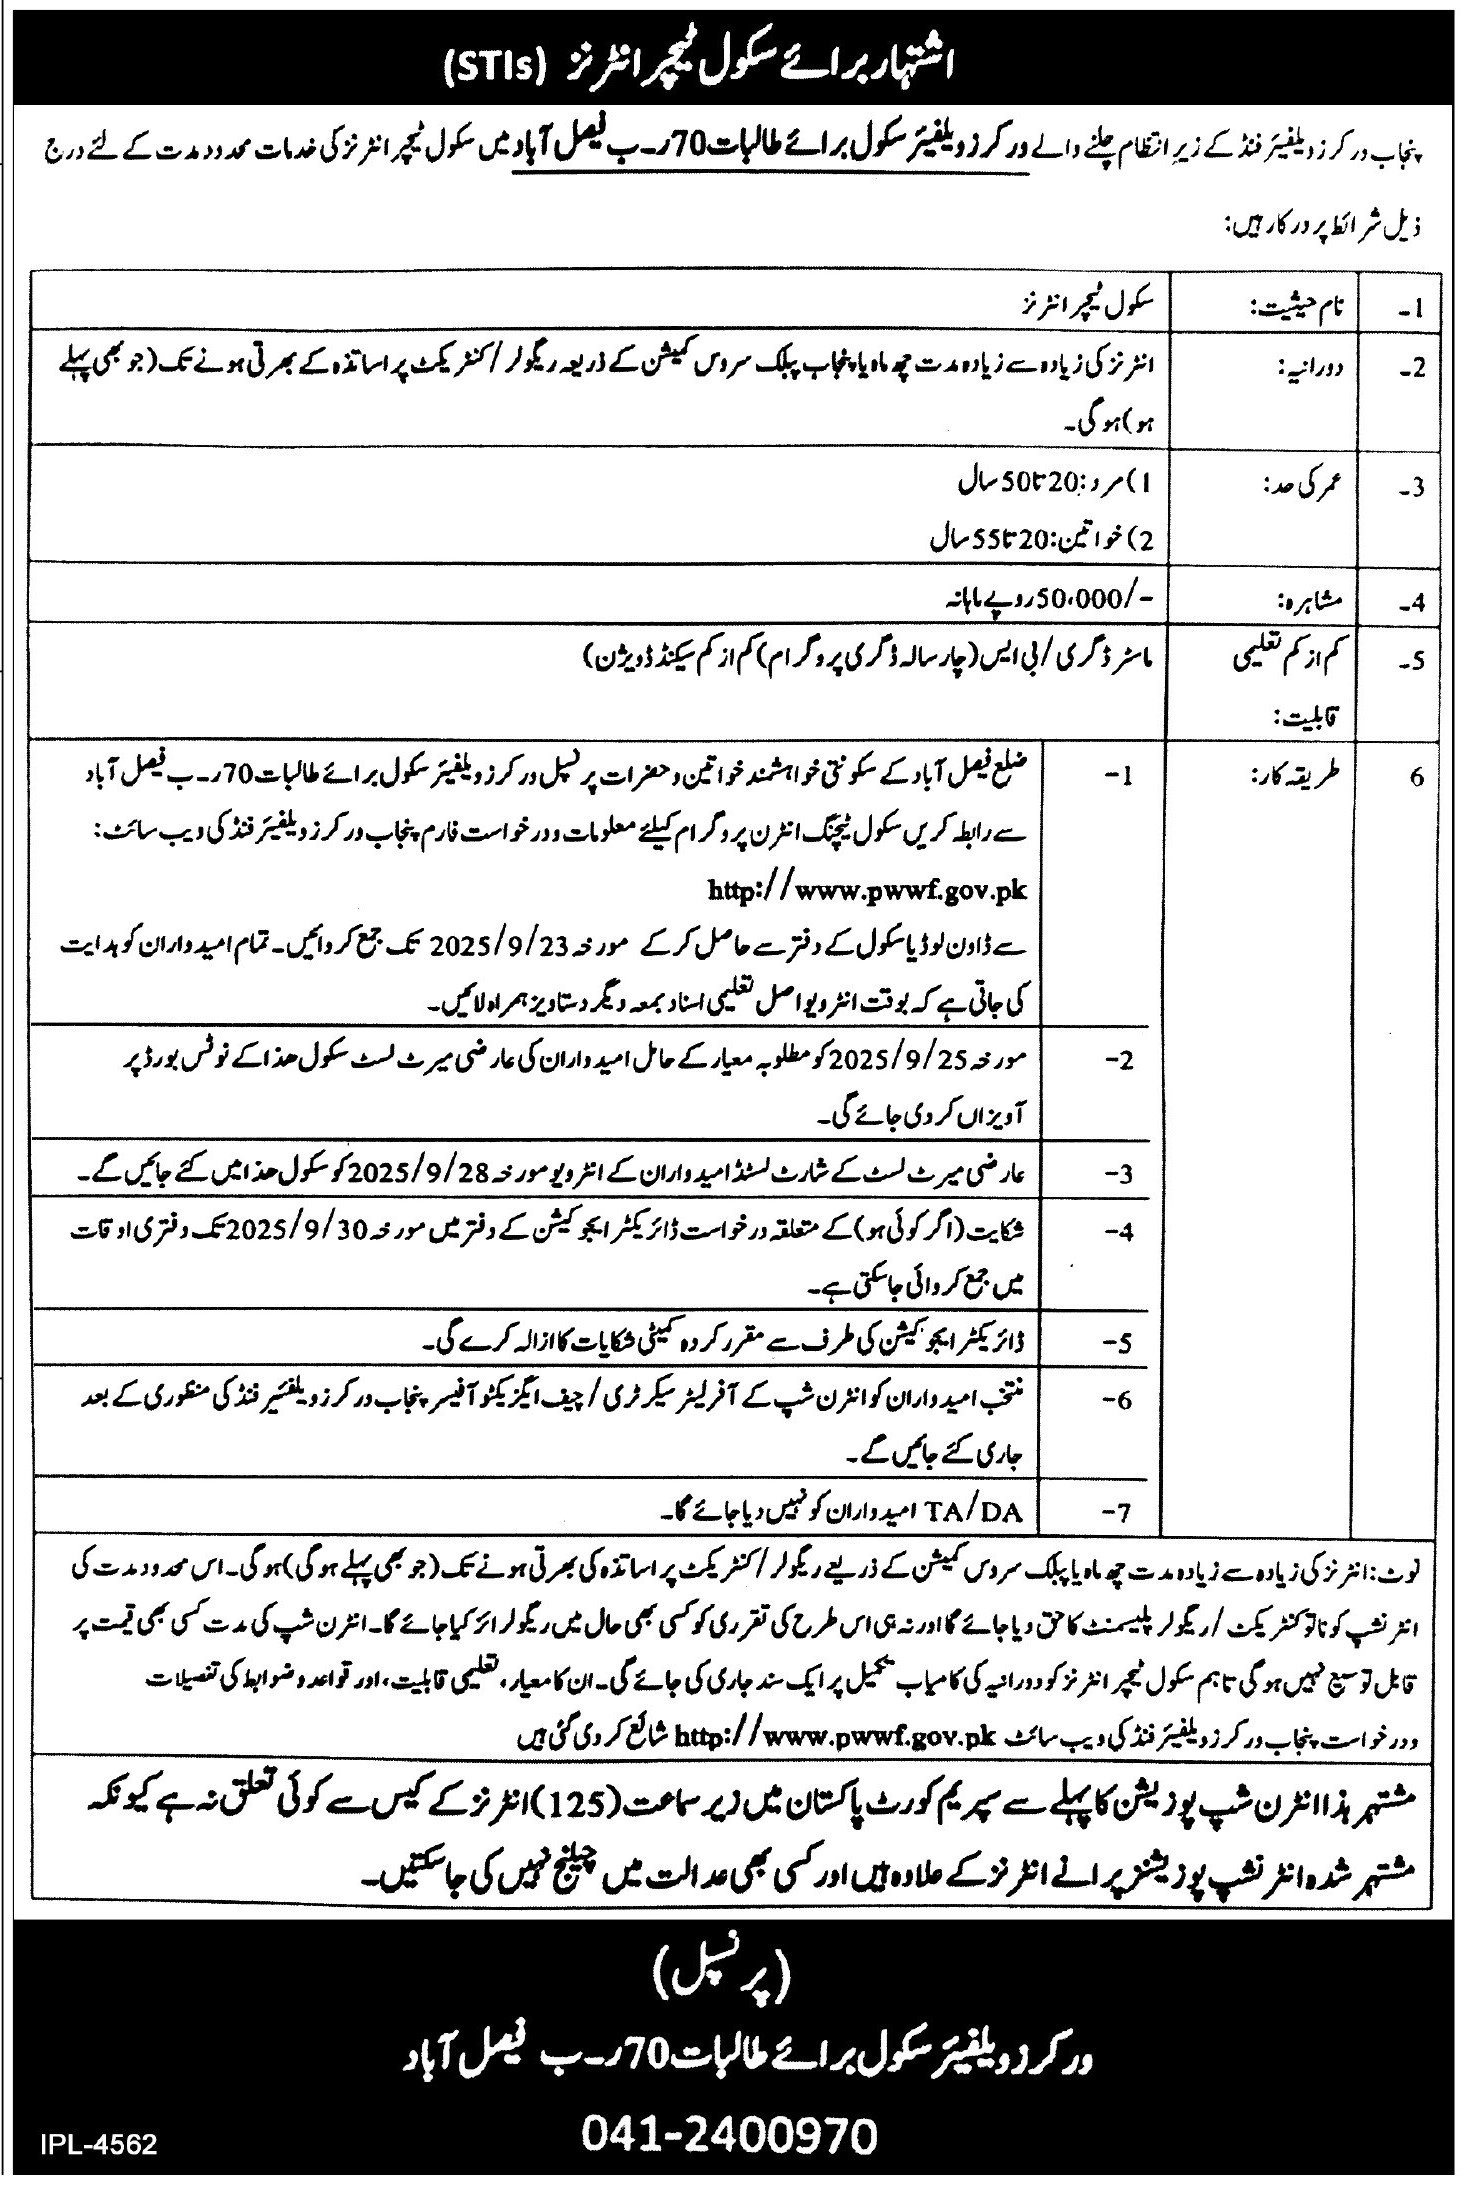 اشتہار برائے سکول ٹیچر انٹرنز (STIs)
پنجاب ورکرز ویلفیئر فنڈ کے زیر انتظام چلنے والے ورکرز ویلفیئر سکول برائے طالبات 70ر۔ب فیصل آباد میں سکول ٹیچر انٹرنز کی خدمات محدود مدت کے لئے درج
ذیل شرائط پر درکار ہیں:
1۔ نام حیثیت: سکول ٹیچر انٹرنز
2۔ دورانیہ: انٹرنز کی زیادہ سے زیادہ مدت چھ ماہ یا پنجاب پبلک سروس کمیشن کے ذریعہ ریگولر/کنٹریکٹ پر اساتذہ کے بھرتی ہونے تک (جو بھی پہلے
ہو) ہوگی۔
3۔ عمر کی حد: 1) مرد: 20 تا 50 سال
2) خواتین: 20 تا 55 سال
4۔ مشاہرہ: 50،000/- روپے ماہانہ
5۔ کم از کم تعلیمی ماسٹر ڈگری/بی ایس (چار سالہ ڈگری پروگرام) کم از کم سیکنڈ ڈویژن)
قابلیت:
6 طریقہ کار: 1- ضلع فیصل آباد کے سکونتی خواہشمند خواتین و حضرات پرنسپل ورکرز ویلفیئر سکول برائے طالبات 70ر۔ب فیصل آباد
سے رابطہ کریں سکول ٹیچنگ انٹرن پروگرام کیلئے معلومات و درخواست فارم پنجاب ورکرز ویلفیئر فنڈ کی ویب سائٹ:
http://www.pwwf.gov.pk
سے ڈاون لوڈ یا سکول کے دفتر سے حاصل کر کے مورخہ 2025/9/23 تک جمع کروائیں۔ تمام امیدواران کو ہدایت
کی جاتی ہے کہ بوقت انٹرویو اصل تعلیمی اسناد بمعہ دیگر دستاویز ہمراہ لائیں۔
2- مورخہ 2025/9/25 کو مطلوبہ معیار کے حامل امیدواران کی عارضی میرٹ لسٹ سکول ھذا کے نوٹس بورڈ پر
آویزاں کر دی جائے گی۔
3- عارضی میرٹ لسٹ کے شارٹ لسٹڈ امیدواران کے انٹرویو مورخہ 2025/9/28 کو سکول ھذا میں کئے جائیں گے۔
4- شکایت (اگر کوئی ہو) کے متعلقہ درخواست ڈائریکٹر ایجوکیشن کے دفتر میں مورخہ 2025/9/30 تک دفتری اوقات
میں جمع کروائی جاسکتی ہے۔
5- ڈائریکٹر ایجوکیشن کی طرف سے مقرر کردہ کمیٹی شکایات کا ازالہ کرے گی۔
6- منتخب امیدواران کو انٹرن شپ کے آفر لیٹر سیکرٹری/چیف ایگزیکٹو آفیسر پنجاب ورکرز ویلفئیر فنڈ کی منظوری کے بعد
جاری کئے جائیں گے۔
7- TA/DA امیدواران کو نہیں دیا جائے گا۔
نوٹ: انٹرنز کی زیادہ سے زیادہ مدت چھ ماہ یا پبلک سروس کمیشن کے ذریعے ریگولر/کنٹریکٹ پر اساتذہ کی بھرتی ہونے تک (جو بھی پہلے ہوگی) ہوگی۔ اس محدود مدت کی
انٹرنشپ کو نا تو کنٹریکٹ/ریگولر پلیسمنٹ کا حق دیا جائے گا اور نہ ہی اس طرح کی تقرری کو کسی بھی حال میں ریگولرائز کیا جائے گا۔ انٹرن شپ کی مدت کسی بھی قیمت پر
قابل توسیع نہیں ہوگی تاہم سکول ٹیچر انٹرنز کو دورانیہ کی کامیاب تکمیل پر ایک سند جاری کی جائے گی۔ ان کا معیار، تعلیمی قابلیت، اور قواعد و ضوابط کی تفصیلات
و درخواست پنجاب ورکرز ویلفیئر فنڈ کی ویب سائٹ http://www.pwwf.gov.pk شائع کر دی گئی ہیں
مشتہر ہذا انٹرن شپ پوزیشن کا پہلے سے سپریم کورٹ پاکستان میں زیر سماعت (125) انٹرنز کے کیس سے کوئی تعلق نہ ہے کیونکہ
مشتہر شدہ انٹرنشپ پوزیشنز پرانے انٹرنز کے علاوہ ہیں اور کسی بھی عدالت میں چیلنج نہیں کی جاسکتیں۔
(پرنسپل)
ورکرز ویلفیئر سکول برائے طالبات 70ر۔ب فیصل آباد
041-2400970
IPL-4562